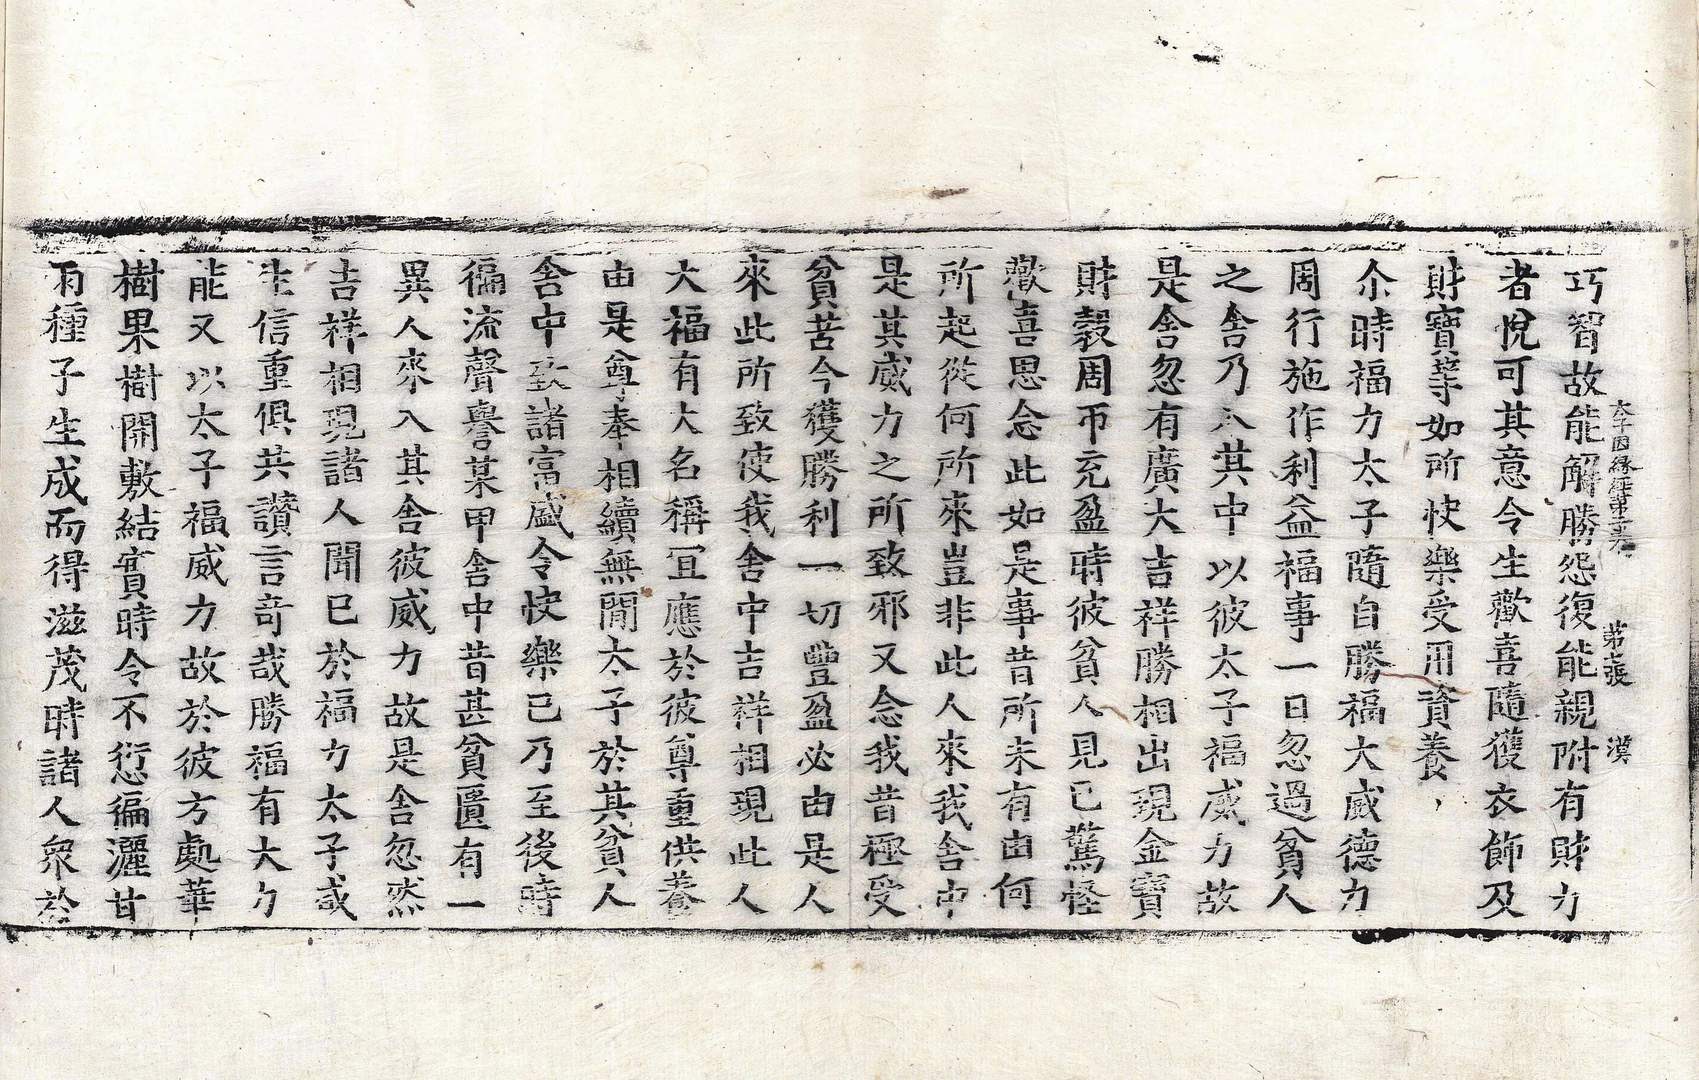 太子因緣經第卷 第張 漢
巧智故能解勝怨復能親附有財力
者悅可其意令生歡喜隨獲衣飾及
財寶等如所快樂受用資養
尒時福力太子隨自勝福大威德力
周行施作利益福事一日忽過貧人
之舍乃入其中以彼太子福威力故
是舍忽有廣大吉祥勝相出現金寶
財穀周帀充盈時彼貧人見已驚怪
歡喜思念此如是事昔所未有由何
所起從何所來豈非此人來我舍中
是其威力之所致邪又念我昔極受
貧苦今獲勝利一切豐盈必由是人
來此所致使我舍中吉祥相現此人
大福有大名稱冝應於彼尊重供養
由是尊奉相續無閒太子於其貧人
舍中致諸富盛令快樂已乃至後時
徧流聲譽某甲舍中昔甚貧匱有一
異人來入其舍彼威力故是舍忽然
吉祥相現諸人聞已於福力太子咸
生信重俱共讚言奇哉勝福有大力
能又以太子福威力故於彼方處華
樹果樹開敷結實時令不愆徧灑甘
雨種子生成而得滋茂時諸人衆於